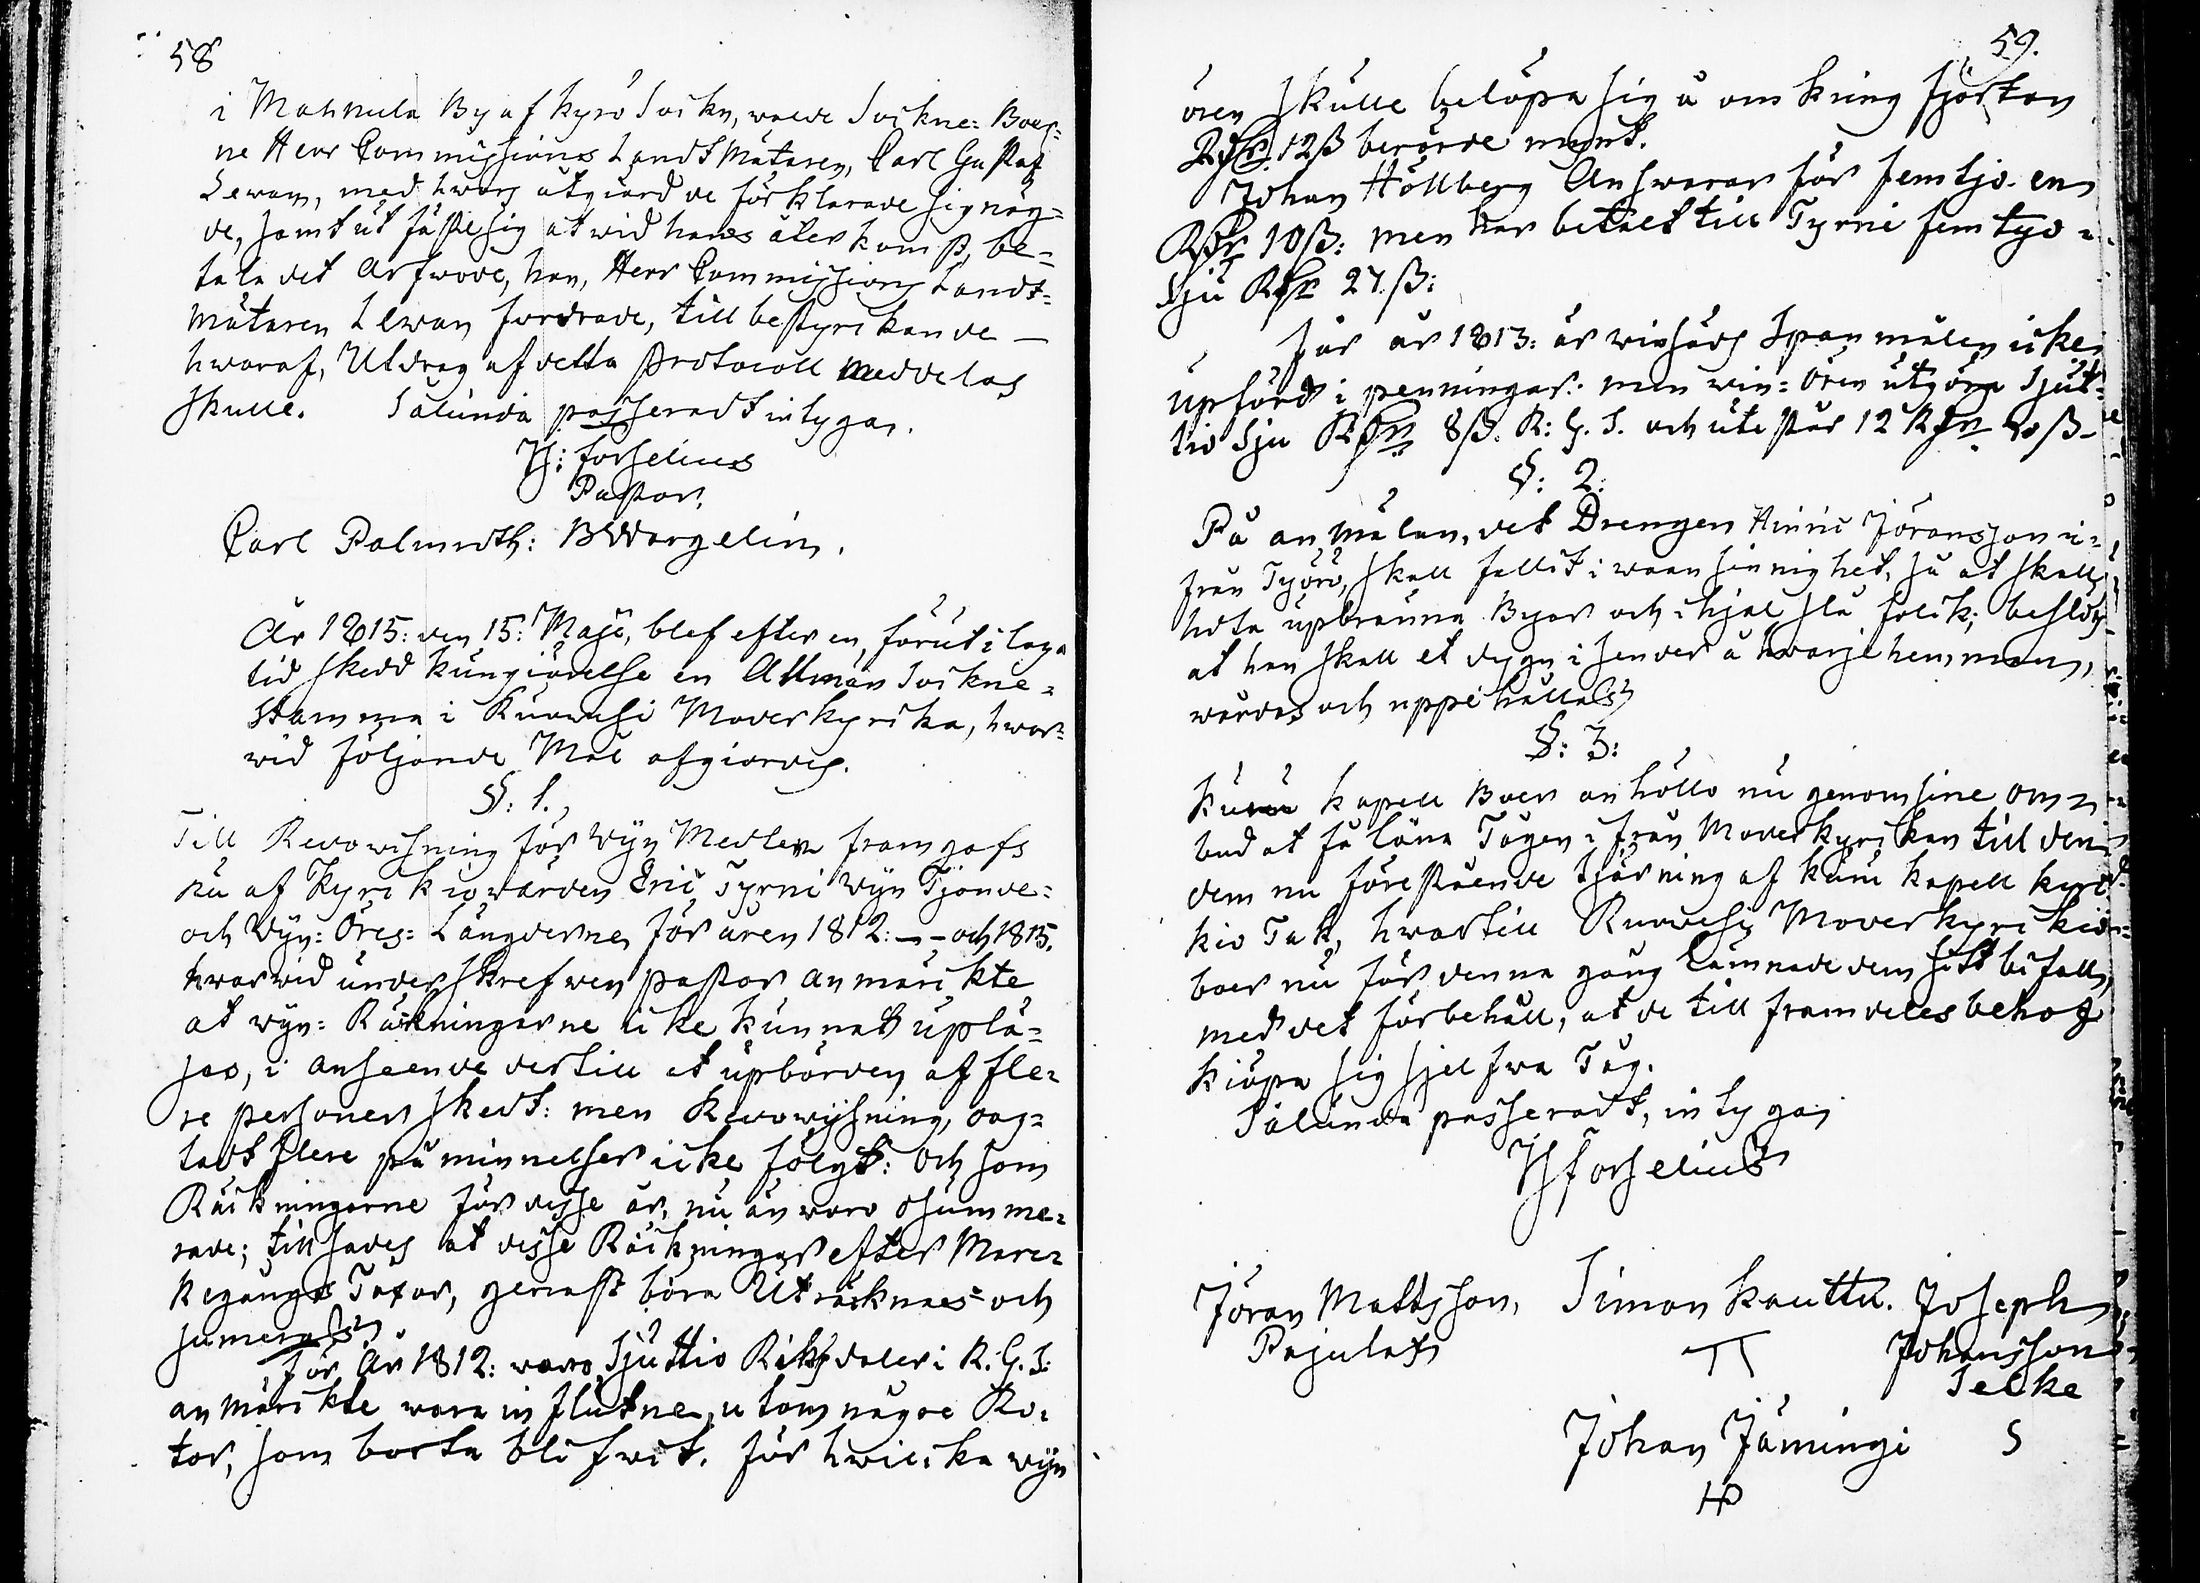 58
i Mahnula By af Kyrö Sockn, walde Sockne-Boer=
ne Herr Commissions Landt Mätaren, Carl Gustaf
Lewan, med hwars åtgiärd de förklarade sig nög=
de, samt utfäste sig at wid hans återkomst, be=
tala det Arfwode, han, Herr Commissions Landt=
mätaren Lewan fordrade, till bestyrkande
hwaraf, Utdrag af detta Protocoll meddelas
skulle. Sålunda passeradt intygar.
H: Forselius
Pastor.
Carl Palmroth: B Wargelin.
År 1815: den 15: Maji, blef efter en, förut i laga
tid skedd kungiörelse en Allmän Sockne=
stämma i Ruowesi Moderkyrka, hwar=
wid följande Mål afgiordes.
§: 1.
Till Redowisning för Wijn Medlen framgafs
nu af Kyrkiowärden Eric Tyrni Wijn Tjonde=
och Wijn=Öres=Längderne för åren 1812: -- och 1815.
hwarwid underskrefwen Pastor anmärkte
at wijn=Räkningarne icke kunnat uplä=
sas, i anseende dertill at upbörden af fle=
re personer skedt: men Redowijsning, oag=
tadt flere påminnelser icke fölgt: och som
Räckningarne för desse år, nu än woro osumme=
rade; tillsades at desse Räckningar efter Mare=
kegångs Taxor, genast böra Uträcknas och
sumeras
För År 1812: woro Sjuttio Riksdaler i R. G. S:
anmärkte wara influtne, utom någre Ro=
tar, som borta blifwit. För hwilcka wijn
59.
ören skulle belöpa sig à omkring fjorton
Rdr 12 ß berörde mynt.
Johan Hällberg Answarar för femtjo en
Rdr 10 ß: men har betalt till Tyrni femtyo
Sju Rdr 27 ß:
För år 1813: är winsäds Spanmålen icke
upförd i penningar: men win=ören utgöra Sjut=
tio Sju Rdr 8 ß. R: G. S. och utestår 12 Rdr 20 ß
§: 2:
På anmälan, det Drengen Hinric Jöransson i=
från Työrö, skall fallit i waansinnighet, så at skall
hota upbränna Byar och ihjäl slå folck; beslöts
at han skall et dygn i sender å hwarje hemman,
wårdas och uppehållas
§: 3:
Kuru kapell Boer anhöllo nu genom sine om=
bud at få låna Tågen ifrån Moderkyrckan till den
dem nu förestående tjärning af kuru kapell kyrc=
kio Tak, hwartill Ruowesi Moderkyrckio=
boer nu för denna gång lämnade dem sitt bifall,
med det förbehåll, at de till framdeles behof
kiöpa sig sjelfwa Tåg.
Sålunda passeradt, intygar
H Forselius
Jöran Mattsson, Simon Kauttu. Joseph
Pajulax Johansson
Selke
Johan Jämingi S